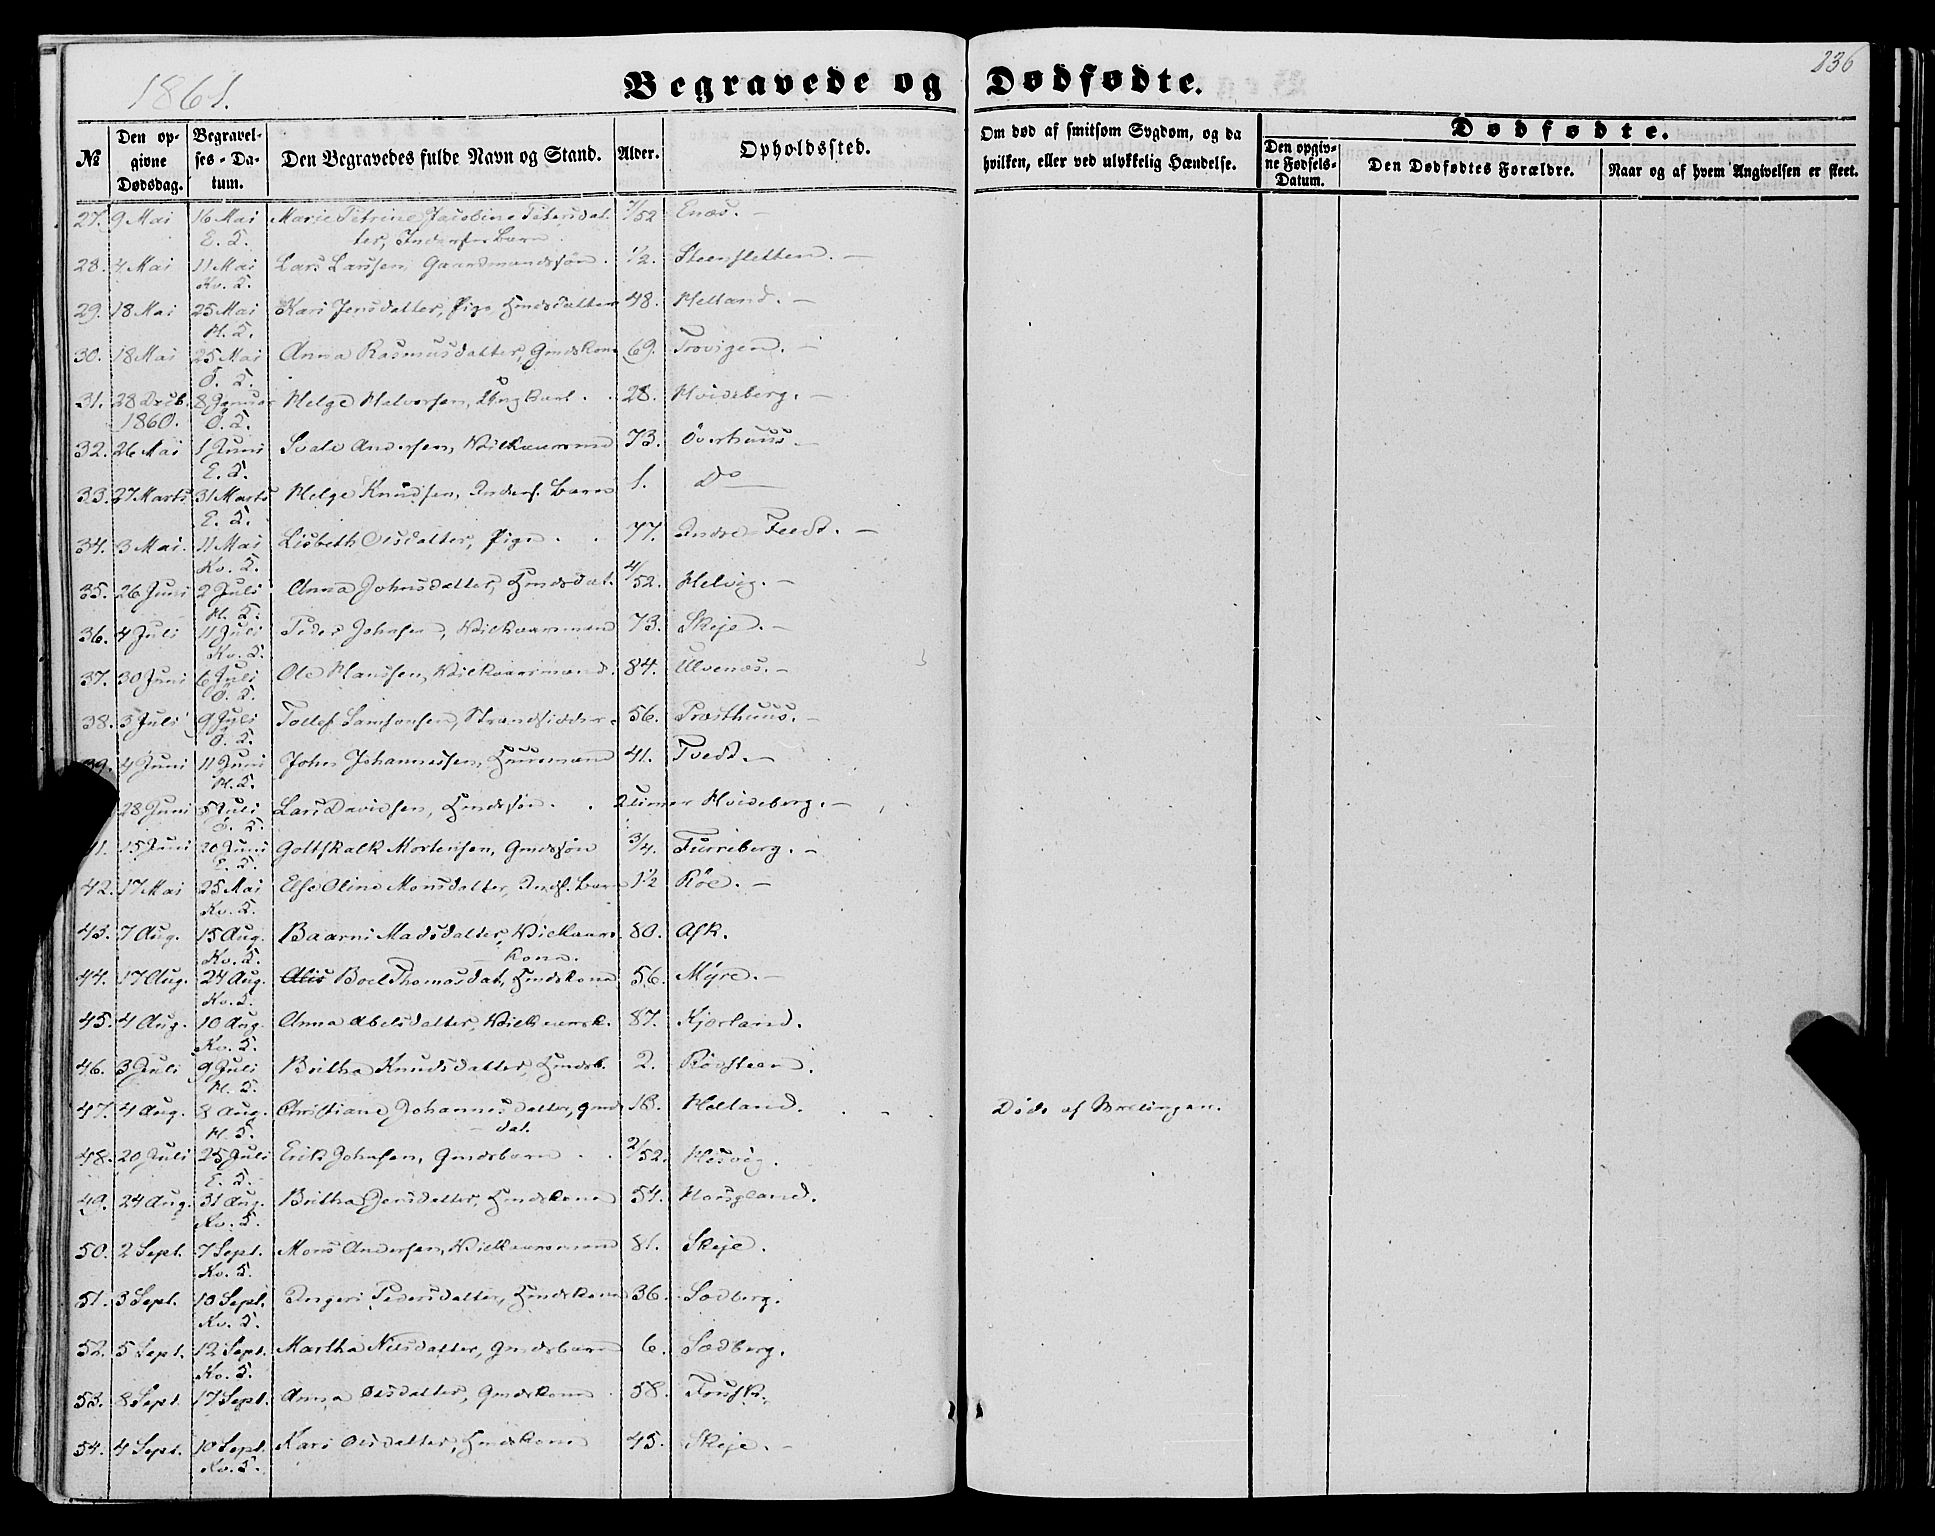 236
1861.
Begravede og Dødfødte.
№
Den opgivne Dødsdag.
Begravelses-Datum.
Den Begravedes fulde Navn og Stand.
Alder.
Opholdssted.
Om død af smitsom Sygdom, og da hvilken, eller ved ulykkelig Hændelse.
Dødfødte.
Den opgivne Fødsels-Datum.
Den Dødfødtes Forældre.
Naar og af hvem Angivelsen er skeet.
27. 9 Mai 16 Mai Marie Petrine Jacobine Petersdat- 7/52 Enæs. -
E. K. ter, Inderstbarn
28. 4 Mai 11 Mai Lars Larssen, Gaardmandssøn. 1/2. Steensletten. -
Kv. K.
29. 18 Mai 25 Mai Kari Jensdatter, Pige, Hmdsdatter 48. Helland. -
H. K.
30. 18 Mai 25 Mai Anna Rasmusdatter, Gmdskone 69. -
Ö. K.
31. 28 Decb. 8 Januar Helge Halvorsen, Ungkarl. 28. Hvideberg. -
1860. Ö. K.
32. 26 Mai 1 Juni Andersen, Vilkaarsmd 73. Överhuus -
E. K.
33. 27 Marts 31 Marts Helge Knudsen, Inderst. Barn 1. Do
E. K.
34. 3 Mai. 11 Mai Lisbeth Olsdatter, Pige. 77. Indre - -
Kv. K.
35. 26 Juni 2 Juli Anna Johnsdatter, Hmdsdat. 4/52. Helvig. -
H. K.
36. 4 Juli 11 Juli Peder Johnsen, Vilkaarsmand 73. Skeje. -
Kv. K.
37. 30 Juni 6 Juli Ole Hanssen, Vilkaarsmand. 84. Ulvenæs. -
Ö. K.
38. 3 Juli 9 Juli Tollef Samsonsen, Strandsidder 56. Præsthuus. -
Ö. K.
39. 4 Juni 11 Juni John Johannessen, Huusmand 41. Tvedt. -
H. K.
28 Juni 5 Juli Lars Davidsen, Hmdssøn. 2 timer Hvideberg. -
Ö. K.
41. 15 Juni 20 Juni Gottskalk Mortensen, Gmdssøn 3/4. Furreberg. -
E. K.
42. 17 Mai 25 Mai Else Oline Monsdatter, Indst. Barn 1 1/2 Röe. -
Kv. K.
43. 7 Aug. 15 Aug. Baarni Madsdatter, Vilkaars- 80. Ask.
Kv. K. kone.
44. 17 Aug. 24 Aug. Boel Thomasdat, Hmdskone 56. Myre. -
Kv. K.
45. 4 Aug. 10 Aug. Anna Abelsdatter, Vilkaarsk. 87. Kjerland.
Kv. K.
46. 3 Juli 9 Juli Britha Knudsdatter, Hmdsb. 2. Rödsteen.
H. K.
47. 4 Aug. 8 Aug. Christiane Johannesdatter, Gmds 18. Helland. Døde af
H. K. dat.
48. 20 Juli 25 Juli Erik Johnsen, Gmdsbarn 2/52. Hesvig.
E. K.
49. 24 Aug. 31 Aug. Britha Jensdatter, Hmdskone 54. Haugland.
Kv. K.
50. 2 Sept. 7 Sept. Mons Andersen, Vilkaarsmand 81. Skeje.
Kv. K.
51. 3 Sept. 10 Sept. Ingeri Pedersdatter, Hmdskone 36. Sædberg.
Kv. K.
52. 5 Sept. 12 Sept. Martha Nilsdatter, Gmdsbarn 6. Sædberg.
Kv. K.
53. 8 Sept. 17 Sept. Anna Olsdatter, Gmdskone 58.
54. 4 Sept. 10 Sept. Kari Olsdatter, Hmdskone 45. Skeje. -
Kv. K.